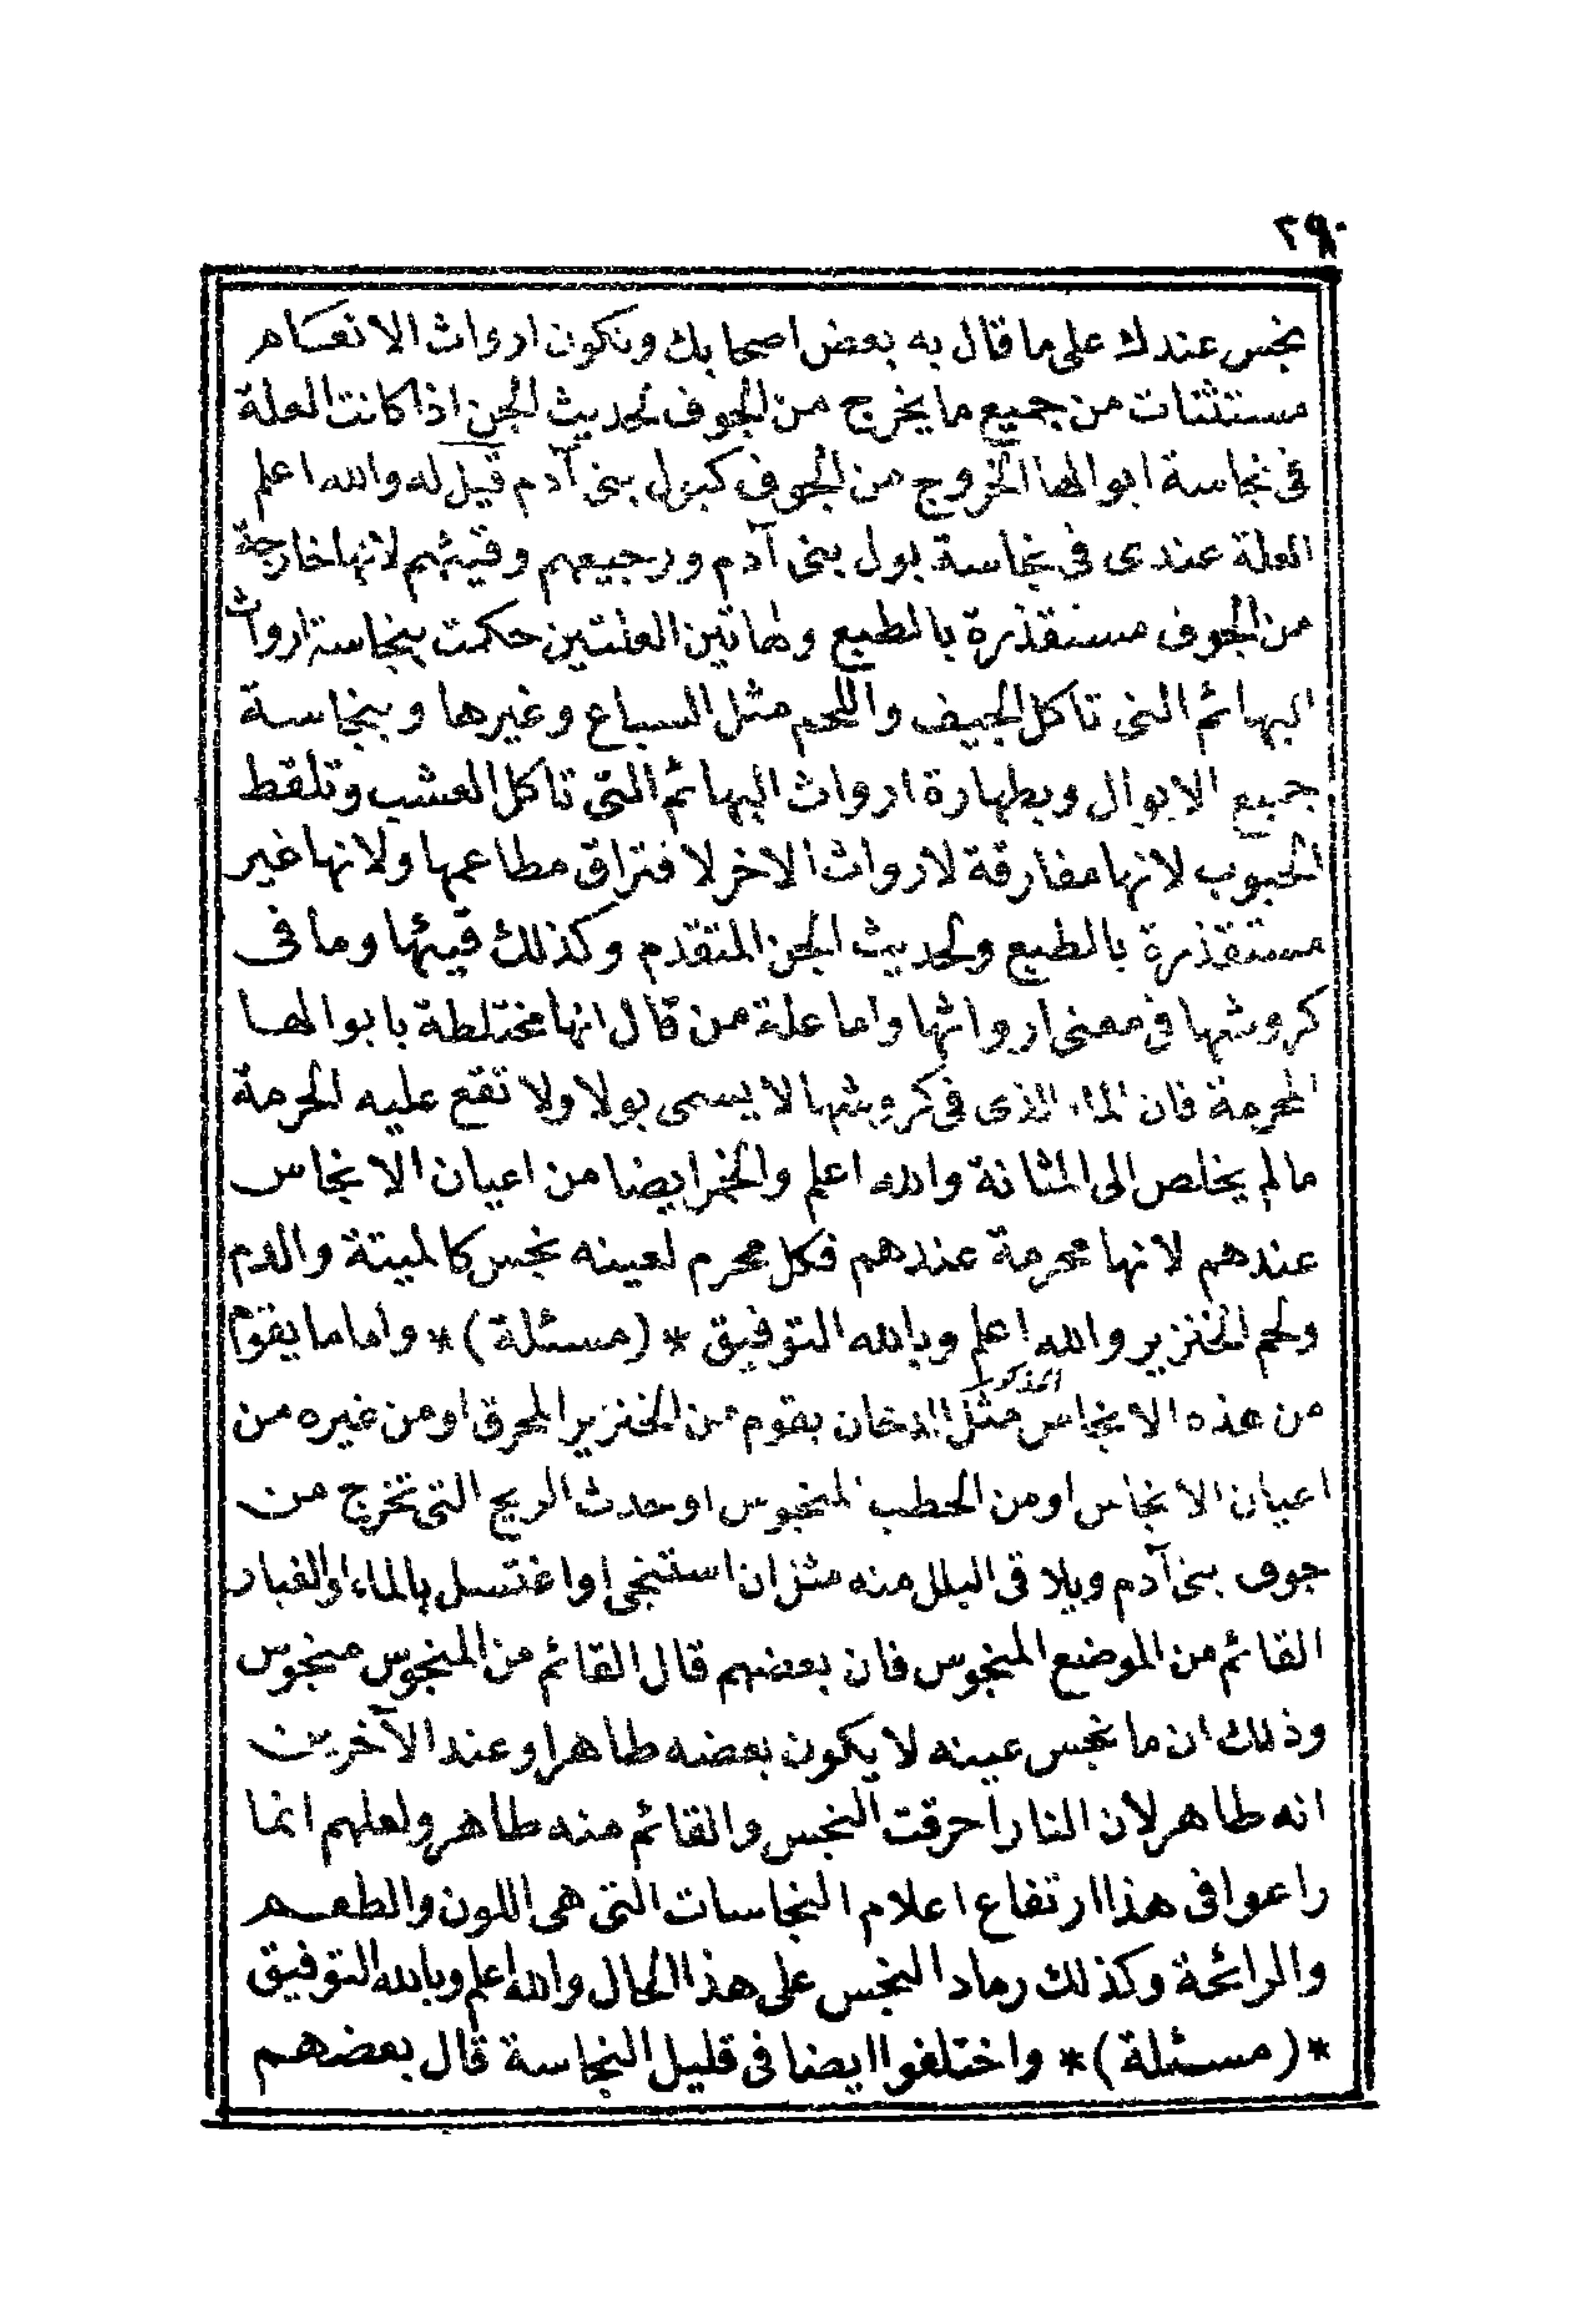 ٢٩٠
نجس عندك على ما قال به بعض اصحابك وتكون ارواث الانعام
مستثنات من جميع ما يخرج من الجوف لحديث الجن اذا كانت العلة
فى نجاسة ابوالها الخروج من الجوف كبول بنى آدم قيل له والله اعلم
العلة عندى فى نجاسة بول بنى آدم ورجيعهم وقيئهم لانها خارجة
من الجوف مستقذرة بالطبع ولهاتين العلتين حكمت بنجاسة ارواث
البهائم التى تاكل الجيف واللحم مثل السباع وغيرها وبنجاسة
جميع الابوال وبطهارة ارواث البهائم التى تاكل العشب وتلقط
الحبوب لانها مفارقة لارواث الاخر لافتراق مطاعمها ولانها غير
مستقذرة بالطبع ولحديث الجن المتقدم وكذلك قيئها وما فى
كروشها فى معنى ارواثها واما علة من قال انها مختلطة بابوالها
المحرمة فان الماء الذى فى كروشها لا يسمى بولا ولا تقع عليه الحرمة
ما لم يخلص الى المثانة والله اعلم والخمر ايضا من اعيان الانجاس
عندهم لانها محرمة عندهم فكل محرم لعينه نجس كالميتة والدم
ولحم الخنزير والله اعلم وبالله التوفيق *(مسئلة)* واما ما يقوم
من هذه الانجاس المذكورة مثل الدخان يقوم من الخنزير المحرق او من غيره من
اعيان الانجاس او من الحطب المنجوس او حدث الريح التى تخرج من
جوف بنى آدم ويلاقى البلل منه مثل ان استنجى او اغتسل بالماء او الغبار
القائم من الموضع المنجوس فان بعضهم قال القائم من المنجوس منجوس
وذلك ان ما نجس عينه لا يكون بعضه طاهرا وعند الآخرين
انه طاهر لان النار احرقت النجس والقائم منه طاهر ولعلهم انما
راعوا فى هذا ارتفاع اعلام النجاسات التى هى اللون والطعم
والرائحة وكذلك رماد النجس على هذا الحال والله اعلم وبالله التوفيق
*(مسئلة)* واختلفوا ايضا فى قليل النجاسة قال بعضهم